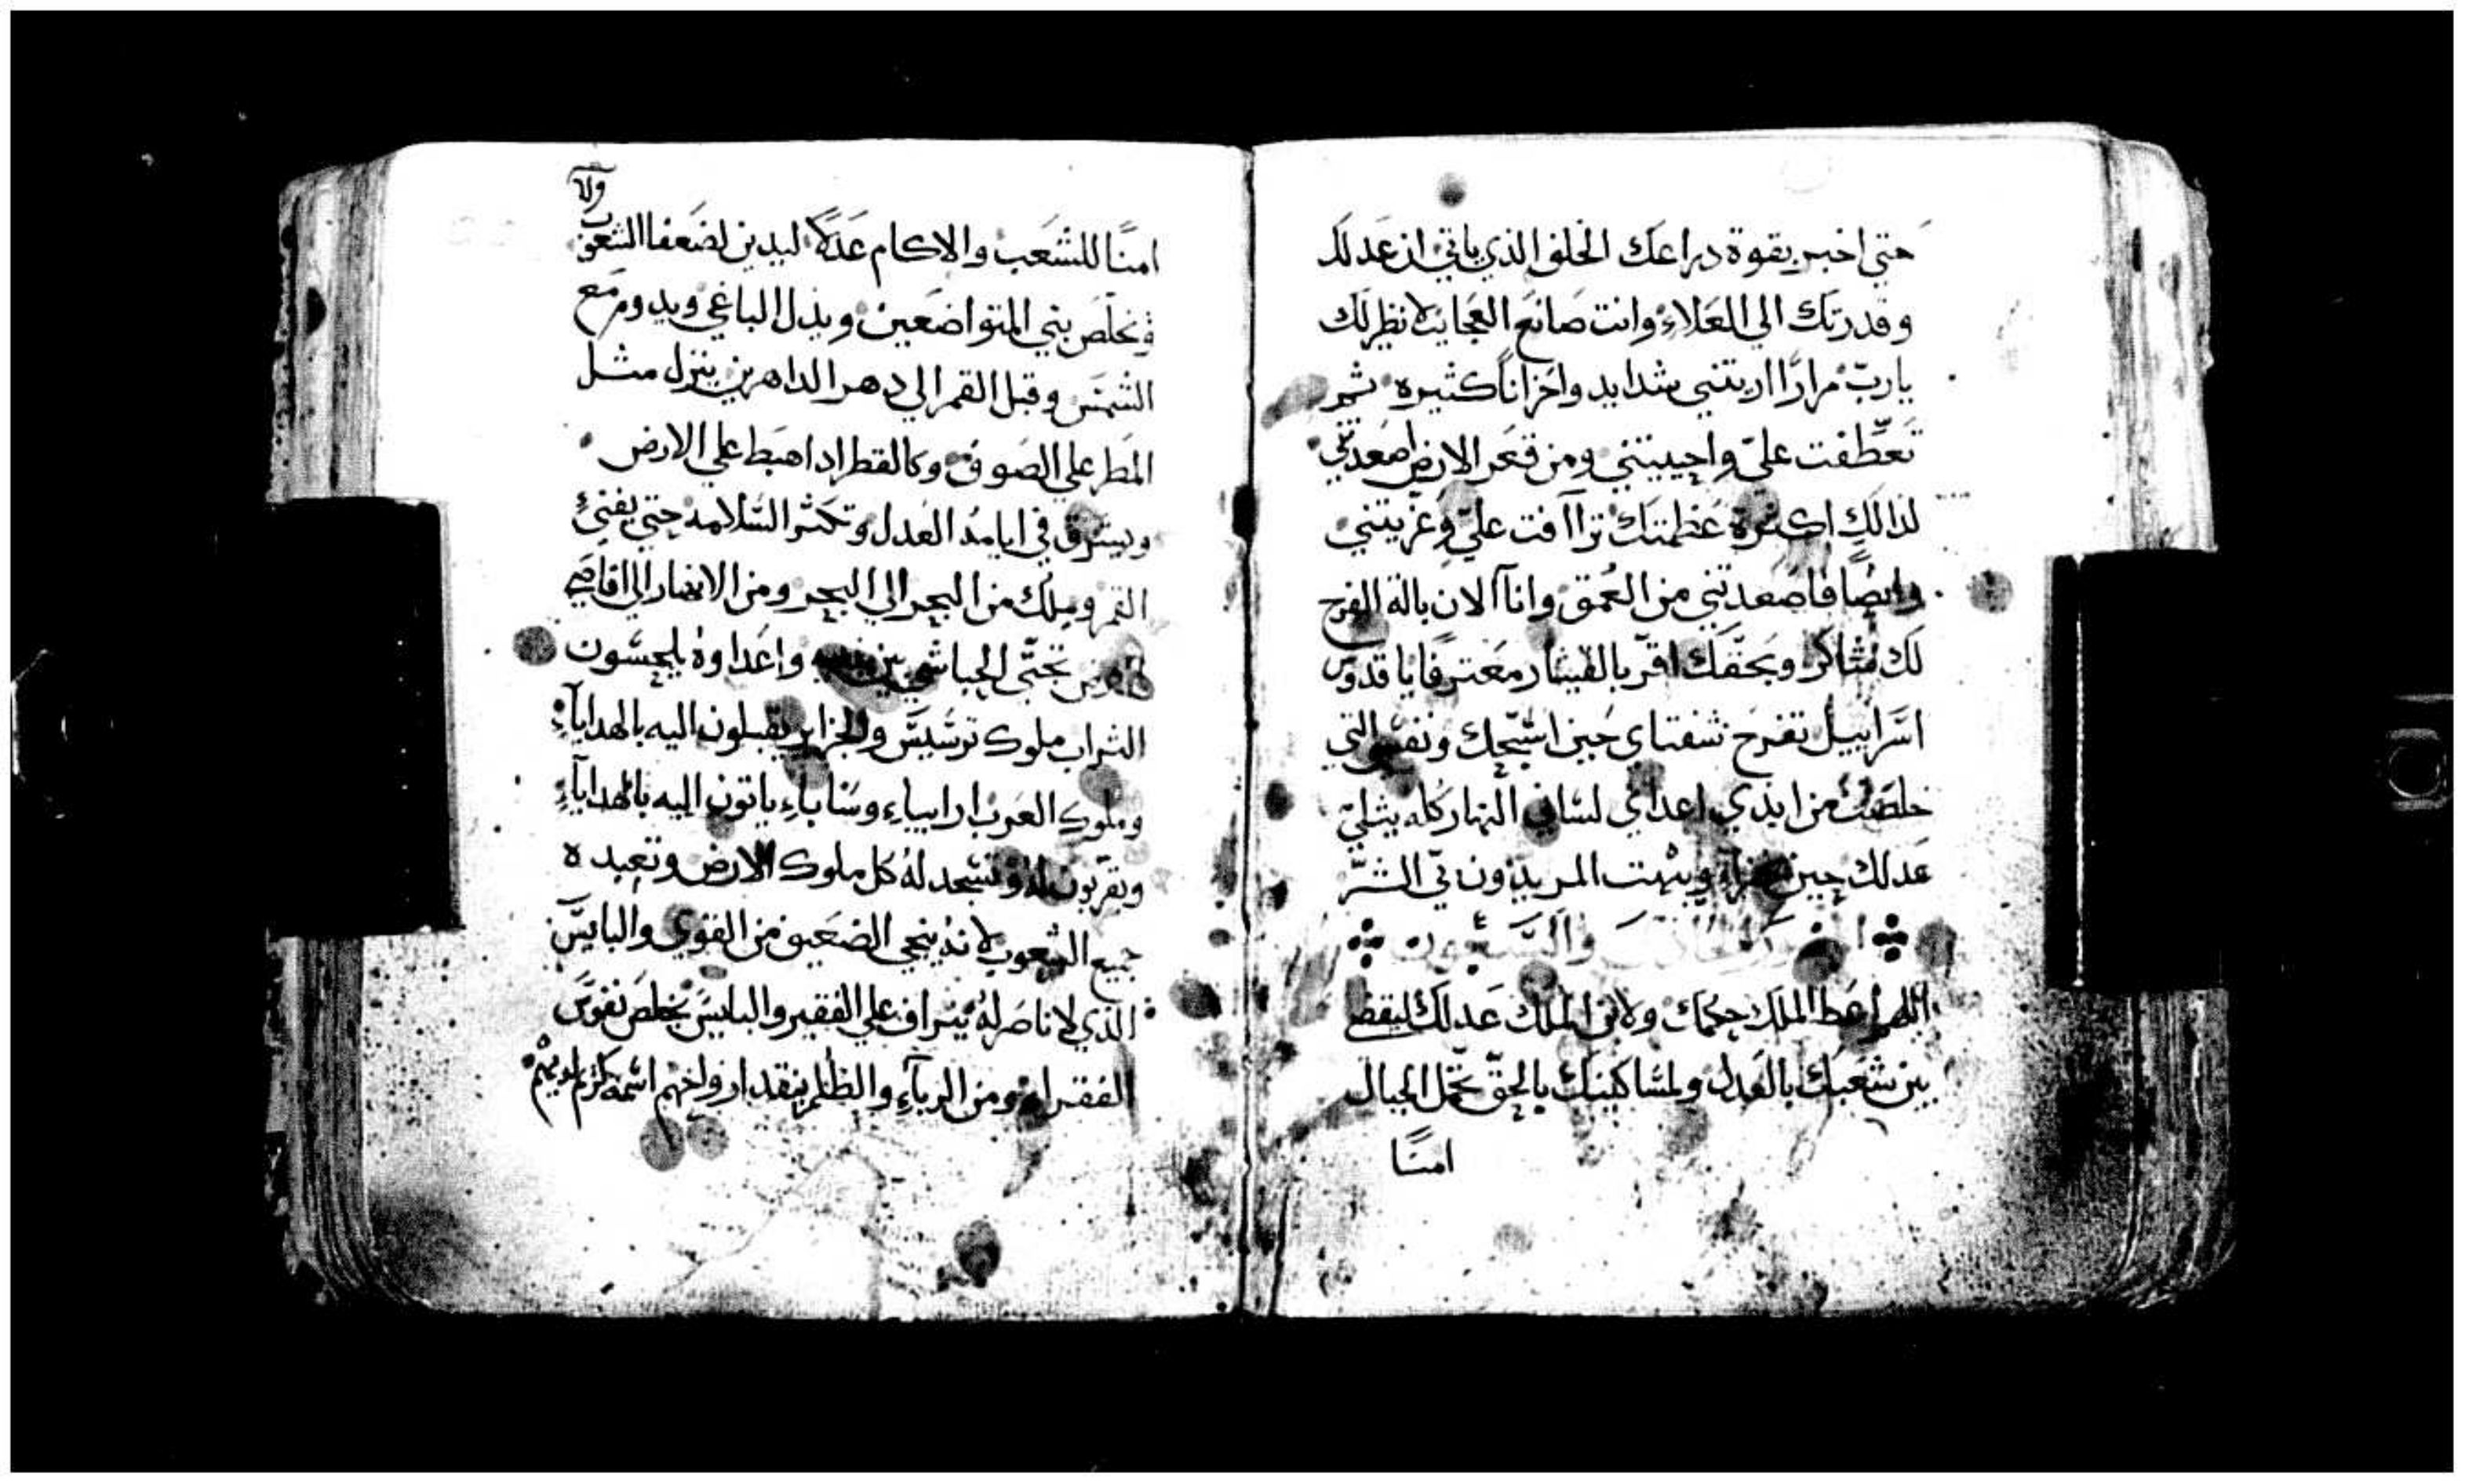 حتي اخبر بقوة دراعك الخلف الذي ياتي ان عدلك
وقدرتك الي العَلاء وانت صانع العجايب لا نظير لك
يا ربّ مرارًا اريتني شدايد واحزانًا كثيره ثم
تعطّفت عليّ واحييتني ومن قعر الارض اصعدتني
لذالك اكثرة عظمتك تراآفت عليّ وعزيتني
وايضًا فاصعدتني من العمق وانا الان بالة الفرح
لك شاكر وبحقّك اقرّ بالقيثار معترفًا يا قدوس
اسراييل تفرح شفتاي حين اسبّحك ونفسي التي
خلصت من ايدي اعداي لساني النهار كله يتلي
عدلك حين ويبهت المريدون بي الشرّ
والسبعون
اللهم اعط الملك حكمك ولابن الملك عدلك ليقضي
بين شعبك بالعدل ولمساكينك بالحقّ تحمل الجبال
امنًا
امنًا للشعب والاكام عدلاً ليدين لضعفا الشعب
ويخلّص بني المتواضعين ويذل الباغي ويدوم مع
الشمس وقبل القمر الي دهر الداهرين ينزل مثل
المطر علي الصوف وكالقطر ادا هبط علي الارض
ويشرق في ايامه العدل وتكثر السّلامه حتي يفني
القمر ويملك من البحر الي البحر ومن الانهار الي اقاصي
تجثي الحباشه بين يديه واعداوهُ يلحسون
التراب ملوك ترسيس والجزاير يقبلون اليه بالهدايآء
وملوك العرب ارابياء وساباء ياتون اليه بالهدايآء
ويقربون له وتسجد لهُ كل ملوك الارض وتعبده
جميع الشعوب لانهُ ينجي الضعيف من القوي والبايس
الذي لا ناصر لهُ يتراف علي الفقير والبايس يخلص نفوس
الفقراء ومن الربآء والظلم ينقد ارواحهم اسمه كريم لديهم